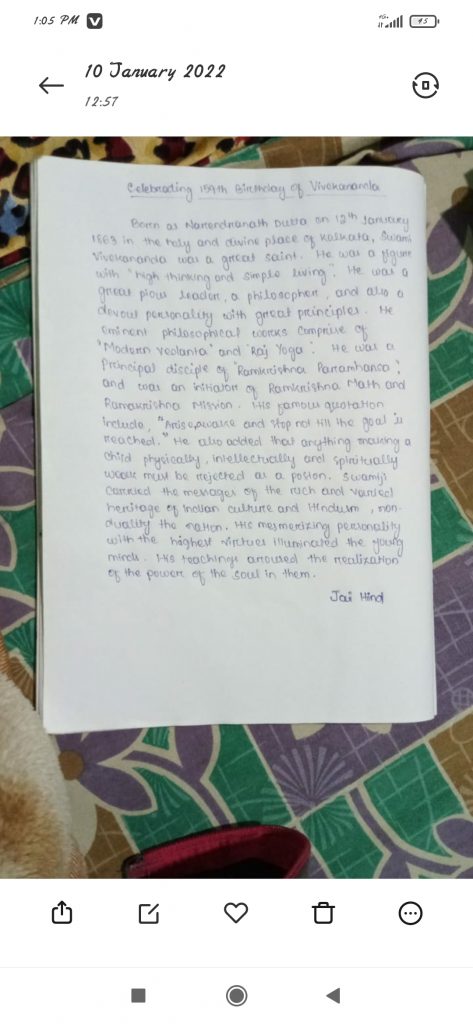 1:05 PM
4G+
45
10 January 2022
12:57
Celebrating 159th Birthday of Vivekananda
Born as Narrendranath Dutta on 12th January
1863 in the holy and divine place of Kolkata, Swami
Vivekananda was a great saint. He was a figure
with "high thinking and simple living". He was a
great piow leader, a philosopher, and also a
devout personality with great principles. He
eminent philosophical works comprise of
'Modern Vedanta' and 'Raj Yoga'. He was a
Principal disciple of 'Ramkrishna Paramhansa',
and was an initiator of Ramkrishna Math and
Ramakrishna Mission. His famous quotation
include, "Arise, awake and stop not till the goal is
reached." He also added that anything making a
child physically, intellectually and spiritually
weak must be rejected as a poison. Swamiji
carried the messages of the rich and varied
heritage of Indian culture and Hinduism, non-
duality the nation. His mesmerizing personality
with the highest virtues illuminated the young
minds. His teachings aroused the realization
of the power of the soul in them.
Jai Hind